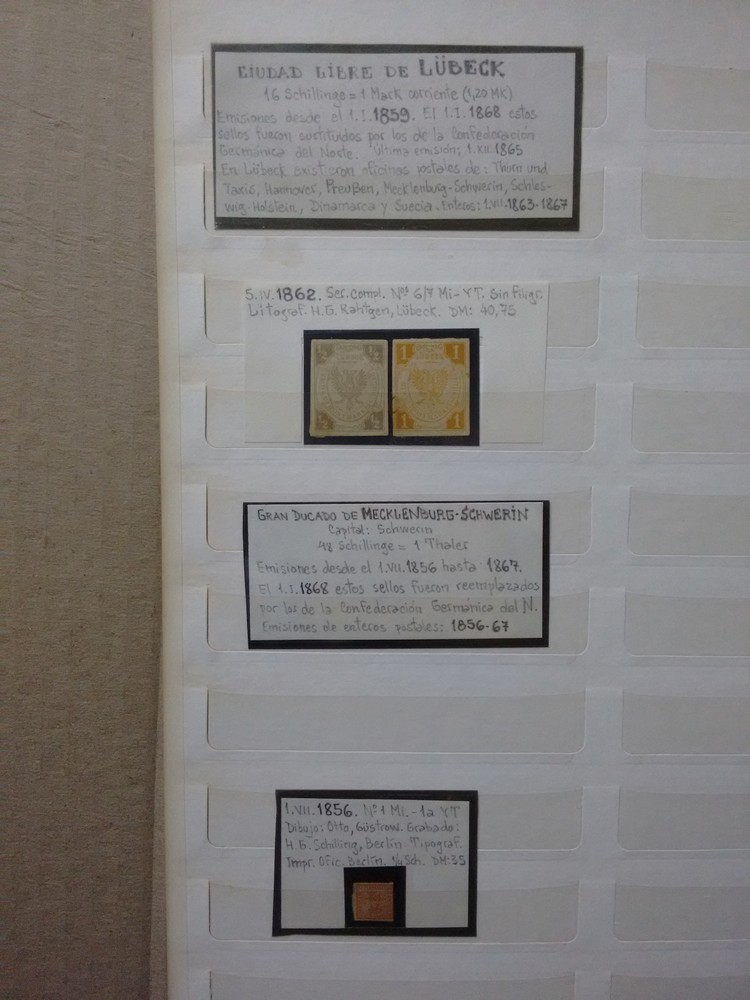 CIUDAD LIBRE DE LÜBECK
16 Schillinge = 1 Mark corriente (1,20 MK)
Emisiones desde el 1.I.1859. El 1.I.1868 estos
sellos fueron sustituidos por los de la Confederación
Germánica del Norte. Última emisión: 1.XII.1865
En Lübeck existieron oficinas postales de: Thurn und
Taxis, Hannover, Preußen, Mecklenburg-Schwerin, Schles-
wig-Holstein, Dinamarca y Suecia. Enteros: 1.VII.1863-1867
5.IV.1862. Ser. Compl. Nos 6/7 Mi-YT. Sin filigr.
Litograf. H.G. Rahtgen, Lübeck. DM: 40,75
½ ½
½ ½
1 1
1 1
GRAN DUCADO DE MECKLENBURG-SCHWERIN
Capital: Schwerin
48 Schillinge = 1 Thaler
Emisiones desde el 1.VII.1856 hasta 1867.
El 1.I.1868 estos sellos fueron reemplazados
por los de la Confederación Germánica del N.
Emisiones de enteros postales: 1856-67
1.VII.1856. Nº1 Mi.-1a YT
Dibujo: Otto, Güstrow. Grabado:
H.G. Schilling, Berlín. Tipograf.
Impr. Ofic. Berlín. ¼ Sch. DM:35